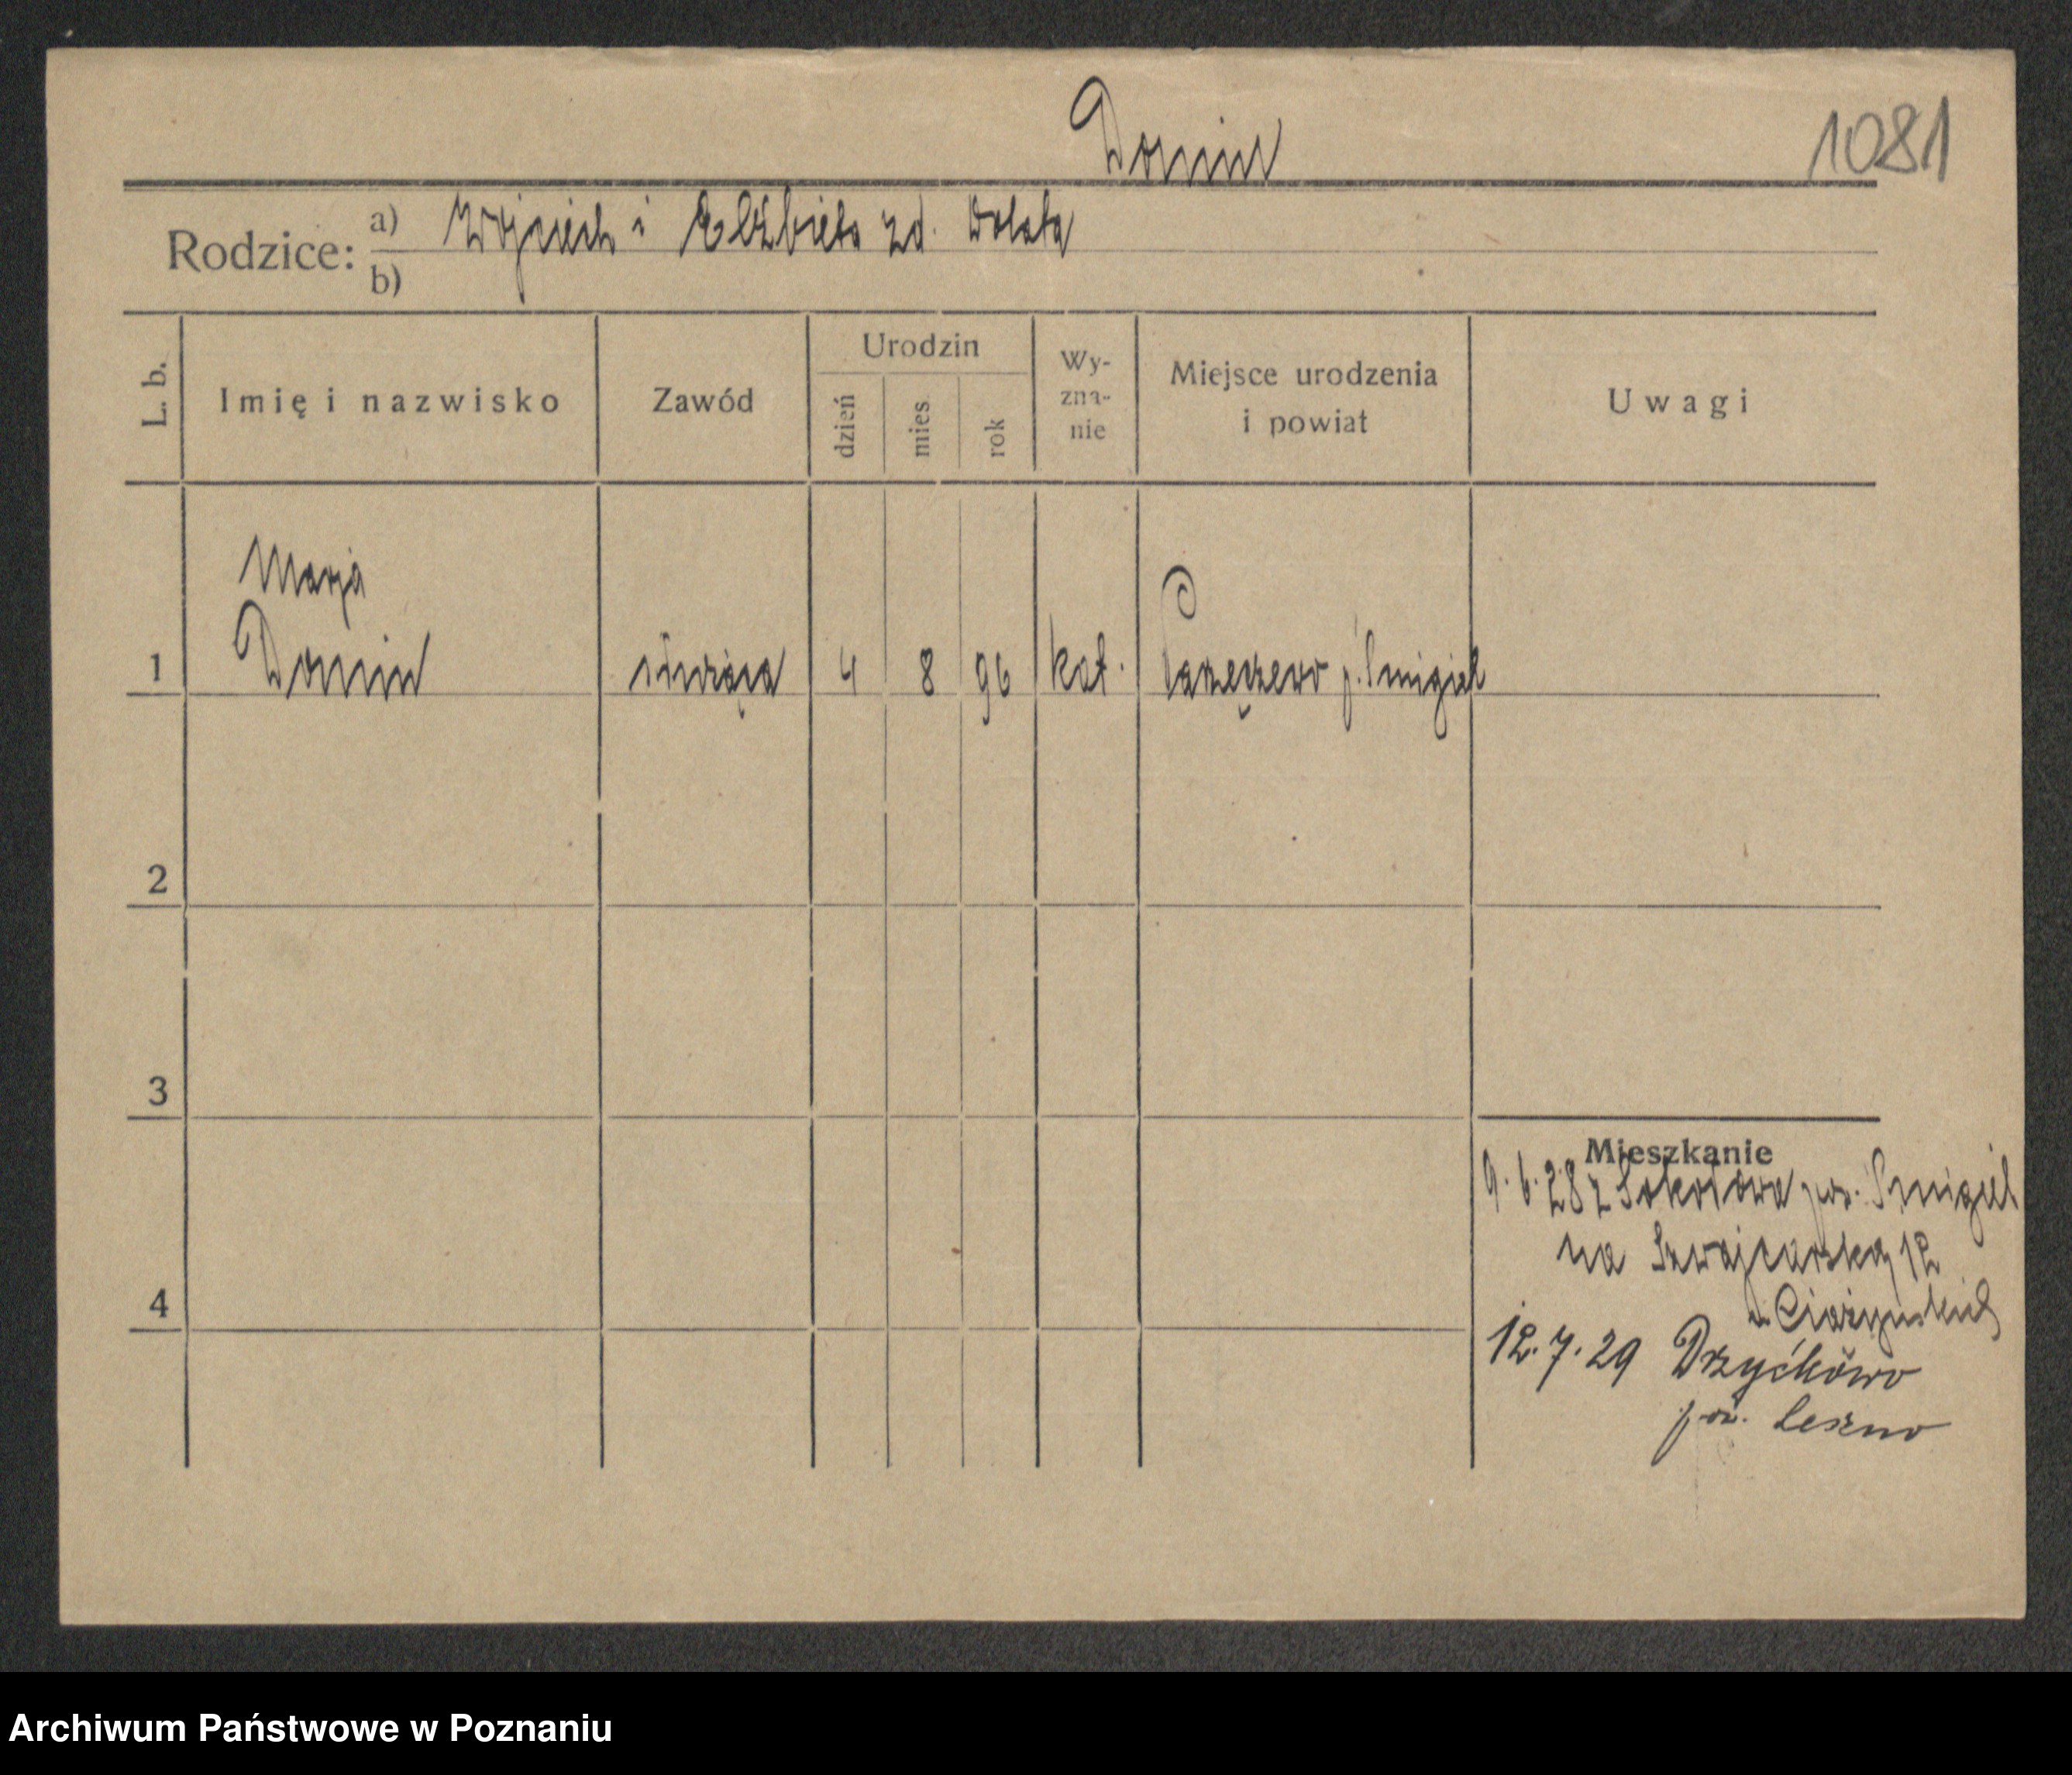 Domin
1081
Rodzice: a) Wojciech i Elżbieta zd. Wolata
b)
L. b.
Imię i nazwisko
Zawód
Urodzin
dzień
mies.
rok
Wy-
zna-
nie
Miejsce urodzenia
i powiat
Uwagi
Marja
1 Domin służąca 4 8 96 kat. Parzęczewo p. Śmigiel
2
3
4
Mieszkanie
9.6.28 z Sokołowa pow. Śmigiel
na Szwajcarską 12
u Ciążyńskich
12.7.29 Drzyćkowo
pow. Leszno
Archiwum Państwowe w Poznaniu